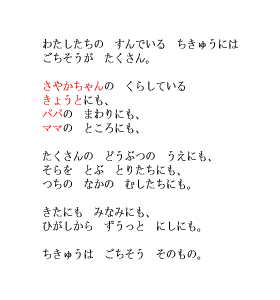 わたしたちの　すんでいる　ちきゅうには
ごちそうが　たくさん。
さやかちゃんの　くらしている
きょうとにも、
パパの　まわりにも、
ママの　ところにも、
たくさんの　どうぶつの　うえにも、
そらを　とぶ　とりたちにも、
つちの　なかの　むしたちにも。
きたにも　みなみにも、
ひがしから　ずうっと　にしにも。
ちきゅうは　ごちそう　そのもの。